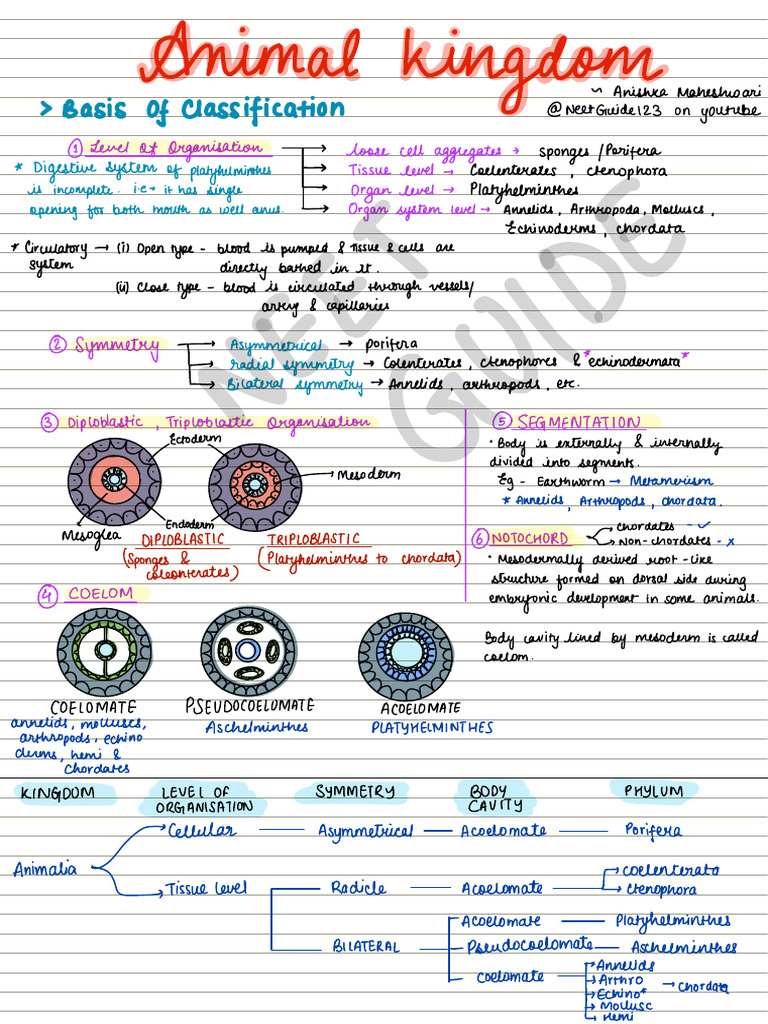 Animal kingdom
~ Anishka Maheshwari
@NeetGuide123 on youtube
> Basis Of Classification
① Level Of Organisation
→ loose cell aggregates → sponges / Porifera
→ Tissue level → Coelenterates, ctenophora
→ Organ level → Platyhelminthes
→ Organ system level → Annelids, Arthropoda, Molluscs,
Echinoderms, chordata
* Digestive System of platyhelminthes
is incomplete. i.e → it has single
opening for both mouth as well anus.
* Circulatory → (i) Open type - blood is pumped & tissue & cells are
system
directly bathed in it.
(ii) Close type - blood is circulated through vessels/
artery & capillaries
② Symmetry
→ Asymmetrical → porifera
→ radial symmetry → Colenterates, ctenophores & *echinodermata*
→ Bilateral symmetry → Annelids, arthropods, etc.
③ Diploblastic, Triploblastic Organisation
Ectoderm
Mesoderm
Mesoglea
Endoderm
DIPLOBLASTIC
(Sponges &
coleonterates)
TRIPLOBLASTIC
(Platyhelminthes to chordata)
④ COELOM
COELOMATE
annelids, molluses,
arthropods, echino
derms, hemi &
chordates
PSEUDOCOELOMATE
Aschelminthes
ACOELOMATE
PLATYHELMINTHES
⑤ SEGMENTATION
• Body is externally & internally
divided into segments.
Eg - Earthworm → Metamerism
* Annelids, Arthropods, chordata.
⑥ NOTOCHORD
→ chordates - ✓
→ Non-chordates - x
• Mesodermally derived root-like
structure formed on dorsal side during
embryonic development in some animals.
Body cavity lined by mesoderm is called
coelom.
KINGDOM LEVEL OF ORGANISATION SYMMETRY BODY CAVITY PHYLUM
Cellular — Asymmetrical — Acoelomate — Porifera
Animalia
Tissue level Radicle — Acoelomate
→ coelenterata
→ ctenophora
BILATERAL
Acoelomate — Platyhelminthes
Pseudocoelomate — Aschelminthes
coelomate
→ Annelids
→ Arthro → chordata
→ Echino*
→ Mollusc
→ Hemi
NEET
GUIDE